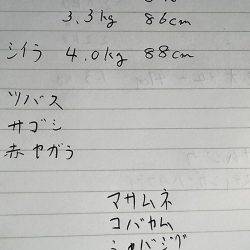 3.3kg 86cm
シイラ 4.0kg 88cm
ツバス
サゴシ
赤ヤガラ
マサムネ
コバカム